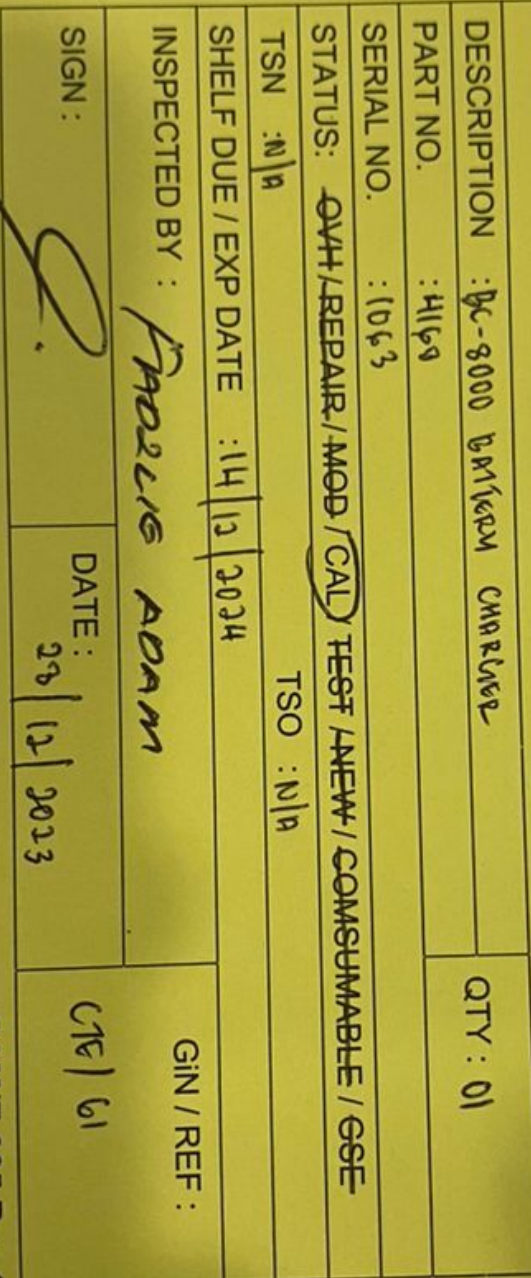 DESCRIPTION : BC-8000 BATTERY CHARGER
QTY : 01
PART NO. : 4168
SERIAL NO. : 1063
STATUS: OVH / REPAIR / MOD / CAL / TEST / NEW / COMSUMABLE / GSE
TSN : N/A TSO : N/A
SHELF DUE / EXP DATE : 14/12/2024
INSPECTED BY : ADAM
GiN / REF :
SIGN :
DATE : 28/12/2023
CTE/61